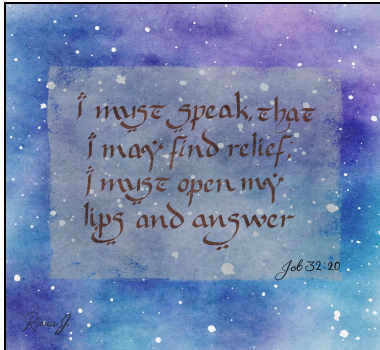 I must speak, that
I may find relief.
I must open my
lips and answer
Job 32:20